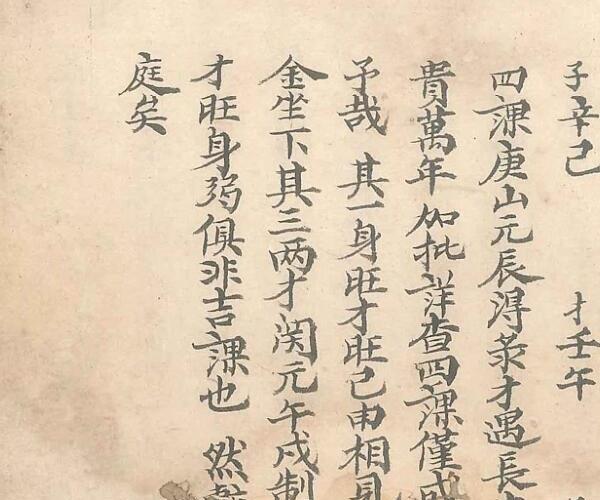 子辛己　才壬午
四課庚山元辰淂彔才遇長
貴萬年　如批詳查四課僅成
予哉　其一身旺才旺己申相見
金坐下其三两才関元午戍制
才旺身弱俱非吉課也　然
庭矣